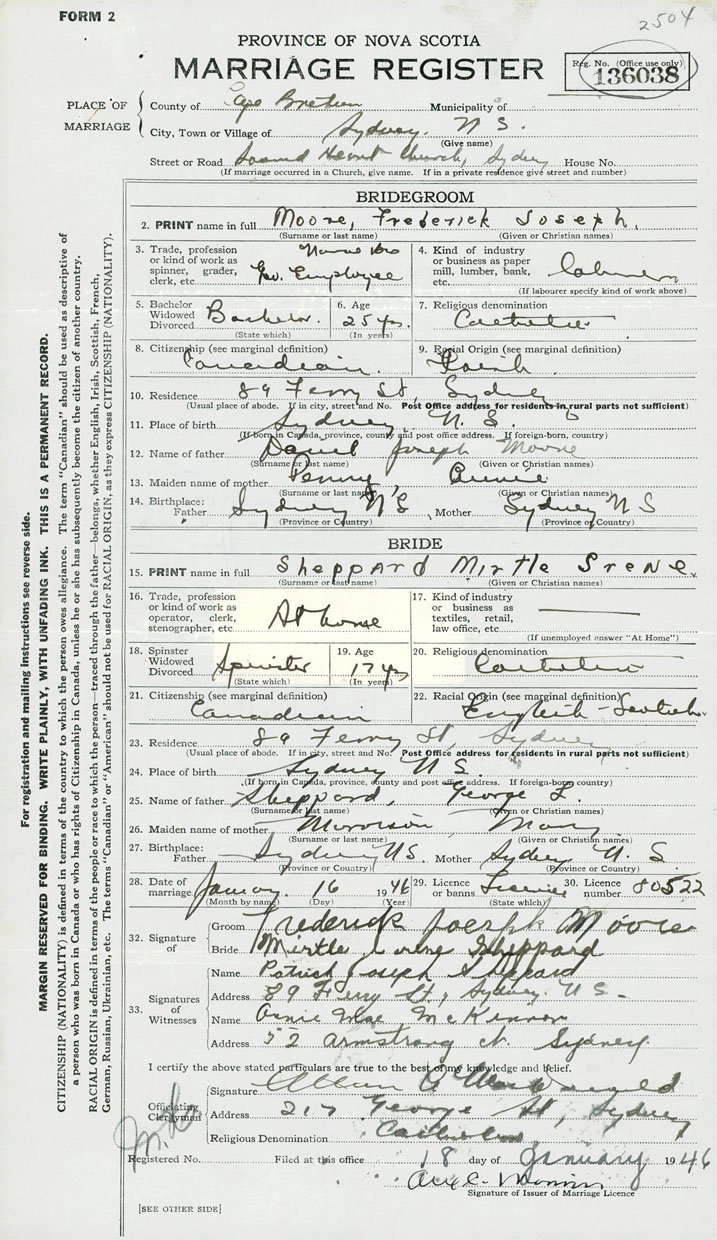 FORM 2
2504
PROVINCE OF NOVA SCOTIA
MARRIAGE REGISTER
Reg. No. (Office use only)
136038
PLACE OF MARRIAGE
County of Cape Breton Municipality of
City, Town or Village of Sydney. N S.
(Give name)
Street or Road Sacred Heart Church, Sydney House No.
(If marriage occurred in a Church, give name. If in a private residence give street and number)
BRIDEGROOM
2. PRINT name in full Moore, Frederick Joseph.
(Surname or last name) (Given or Christian names)
3. Trade, profession or kind of work as spinner, grader, clerk, etc. Gov. Employee
4. Kind of industry or business as paper mill, lumber, bank, etc. labourer
(If labourer specify kind of work above)
5. Bachelor Widowed Divorced Bachelor.
(State which)
6. Age 25 yrs.
(In years)
7. Religious denomination Catholic
8. Citizenship (see marginal definition) Canadian.
9. Racial Origin (see marginal definition) Irish
10. Residence 89 Ferry St, Sydney
(Usual place of abode. If in city, street and No. Post Office address for residents in rural parts not sufficient)
11. Place of birth Sydney N. S.
(If born in Canada, province, county and post office address. If foreign-born, country)
12. Name of father Daniel Joseph Moore
(Surname or last name) (Given or Christian names)
13. Maiden name of mother Penny, Annie
(Surname or last name) (Given or Christian names)
14. Birthplace: Father Sydney N S Mother Sydney N S
(Province or Country) (Province or Country)
BRIDE
15. PRINT name in full Sheppard Mirtle Irene.
(Surname or last name) (Given or Christian names)
16. Trade, profession or kind of work as operator, clerk, stenographer, etc. At home
17. Kind of industry or business as textiles, retail, law office, etc.
(If unemployed answer "At Home")
18. Spinster Widowed Divorced Spinster
(State which)
19. Age 17 yrs
(In years)
20. Religious denomination Catholic
21. Citizenship (see marginal definition) Canadian
22. Racial Origin (see marginal definition) English-Scotish
23. Residence 89 Ferry St, Sydney
(Usual place of abode. If in city, street and No. Post Office address for residents in rural parts not sufficient)
24. Place of birth Sydney N S.
(If born in Canada, province, county and post office address. If foreign-born, country)
25. Name of father Sheppard, George L.
(Surname or last name) (Given or Christian names)
26. Maiden name of mother Morrison Mary
(Surname or last name) (Given or Christian names)
27. Birthplace: Father Sydney N S. Mother Sydney N. S.
(Province or Country) (Province or Country)
28. Date of marriage January 16 1946
(Month by name) (Day) (Year)
29. Licence or banns License
(State which)
30. Licence number 80522
32. Signature of
Groom Frederick Joesph Moore
Bride Mirtle Irene Sheppard
33. Signatures of Witnesses
Name Patrick Joseph Sheppard
Address 89 Ferry St, Sydney. N S.
Name Annie Mae McKinnon
Address 52 Armstrong Ct. Sydney.
I certify the above stated particulars are true to the best of my knowledge and belief.
Officiating Clergyman
Signature
Address 217 George St, Sydney
Religious Denomination Catholic
Registered No. Filed at this office 18 day of January 1946
Signature of Issuer of Marriage Licence
[SEE OTHER SIDE]
For registration and mailing instructions see reverse side.
MARGIN RESERVED FOR BINDING. WRITE PLAINLY, WITH UNFADING INK. THIS IS A PERMANENT RECORD.
CITIZENSHIP (NATIONALITY) is defined in terms of the country to which the person owes allegiance. The term "Canadian" should be used as descriptive of
a person who was born in Canada or who has rights of Citizenship in Canada, unless he or she has subsequently become the citizen of another country.
RACIAL ORIGIN is defined in terms of the people or race to which the person—traced through the father—belongs, whether English, Irish, Scottish, French,
German, Russian, Ukrainian, etc. The terms "Canadian" or "American" should not be used for RACIAL ORIGIN, as they express CITIZENSHIP (NATIONALITY).